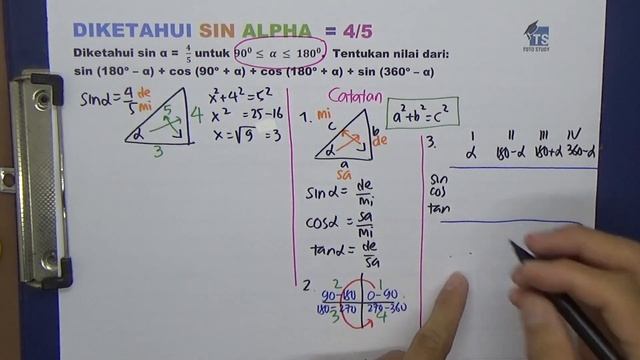 DIKETAHUI SIN ALPHA = 4/5
TS
TOTO STUDY
Diketahui sin α = 4/5 untuk 90⁰ ≤ α ≤ 180⁰. Tentukan nilai dari:
sin (180⁰ – α) + cos (90⁰ + α) + cos (180⁰ + α) + sin (360⁰ – α)
sin α = 4/5 de/mi
5
4
α
3
x² + 4² = 5²
x² = 25 - 16
x = √9 = 3
Catatan
1.
mi
c
b
de
α
a
sa
a² + b² = c²
sin α = de/mi
cos α = sa/mi
tan α = de/sa
2.
2 1
90-180 0-90
180-270 270-360
3 4
3.
I II III IV
α 180-α 180+α 360-α
sin
cos
tan